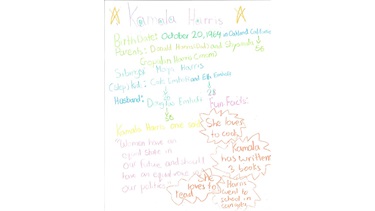 Kamala Harris
Birthdate: October 20, 1964 in Oakland California
Parents: Donald Harris and Shyamala
Harris
Sibling: Maya Harris
Cole Emhoff and Ella Emhoff
Husband: Doug Emhoff
fun facts:
She loves
to cook
Kamala Harris once said
"Women have an
equal stake in
our future and should
have an equal voice
our politics"
Kamala
has written
3 books
She
loves to
read
Harris
went to
school in